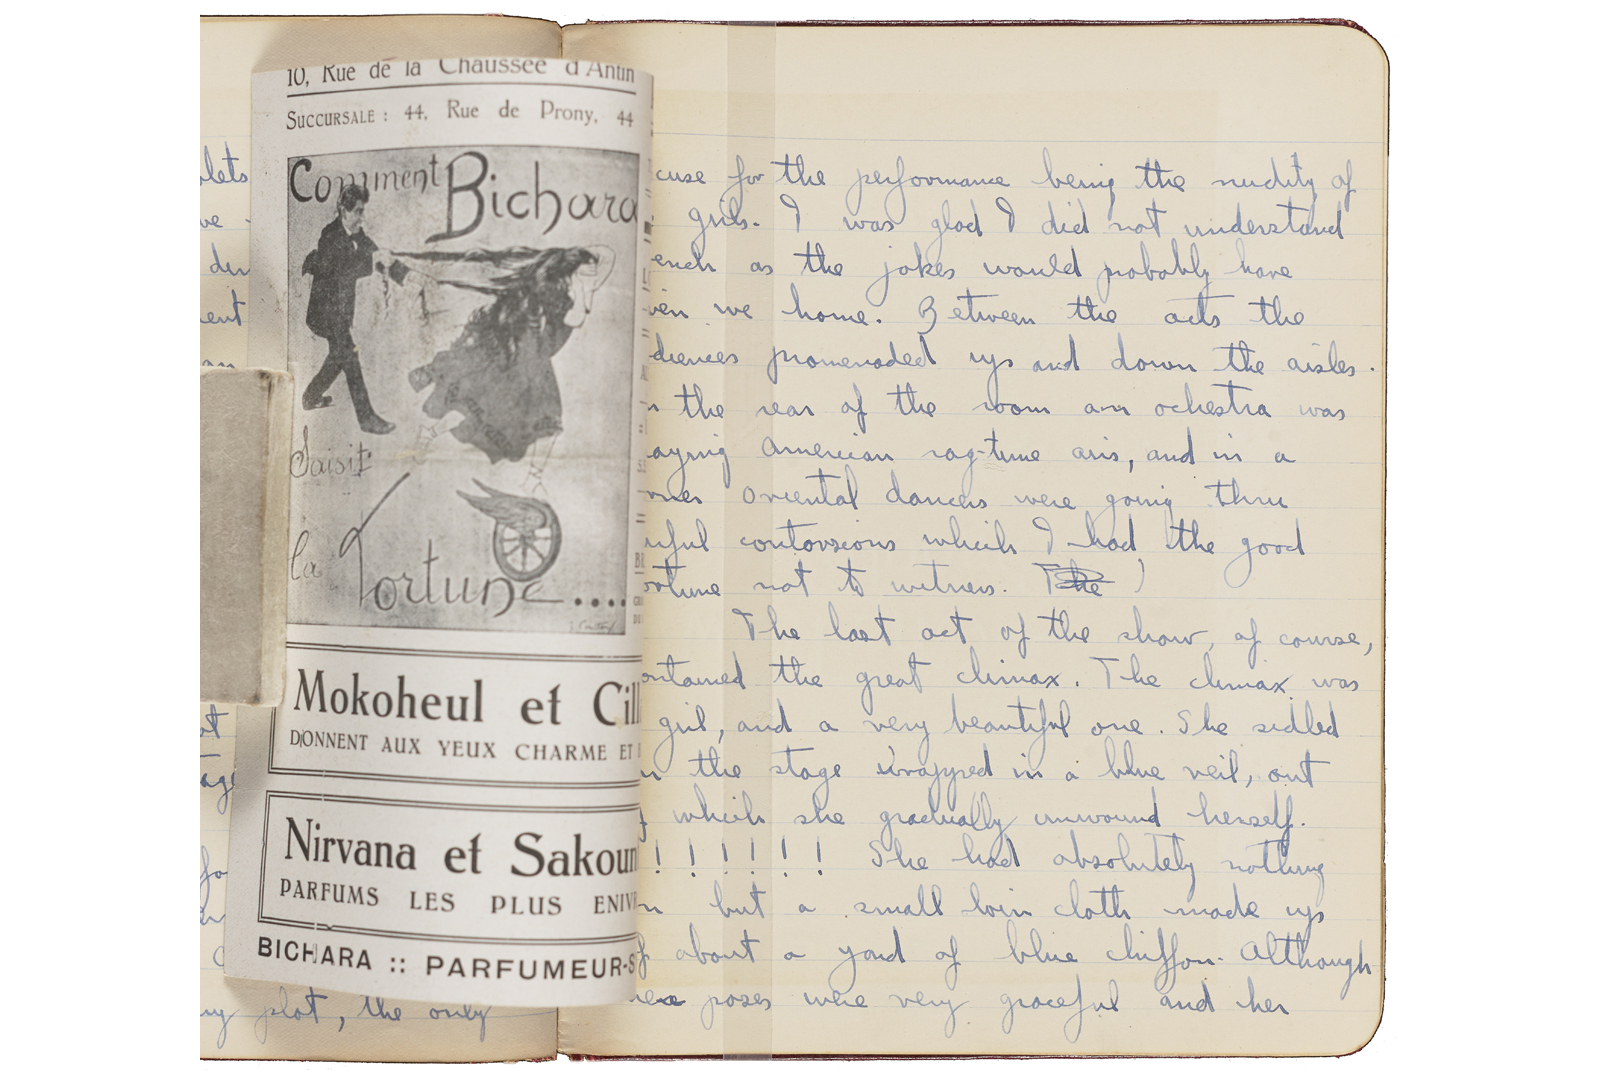 10, Rue de la Chaussée d'Antin
SUCCURSALE : 44, Rue de Prony, 44
Comment Bichara
Saisit
la Fortune....
Mokoheul et Cill
DONNENT AUX YEUX CHARME ET
Nirvana et Sakoun
PARFUMS LES PLUS ENIV
BICHARA :: PARFUMEUR-S
plot, the only
cuse for the performance being the nudity of
girls. I was glad I did not understand
ench as the jokes would probably have
ven me home. Between the acts the
diences promenaded up and down the aisles.
n the rear of the room an ochestra was
aying American rag-time airs, and in a
rner oriental dancers were going thru
uful contorsions which I had the good
ortune not to witness. The )
The last act of the show, of course,
ontained the great climax. The climax was
girl, and a very beautiful one. She sidled
n the stage wrapped in a blue veil, out
f which she gradually unwound herself.
! ! ! ! ! ! She had absolutely nothing
n but a small loin cloth made up
f about a yard of blue chiffon. Although
poses were very graceful and her